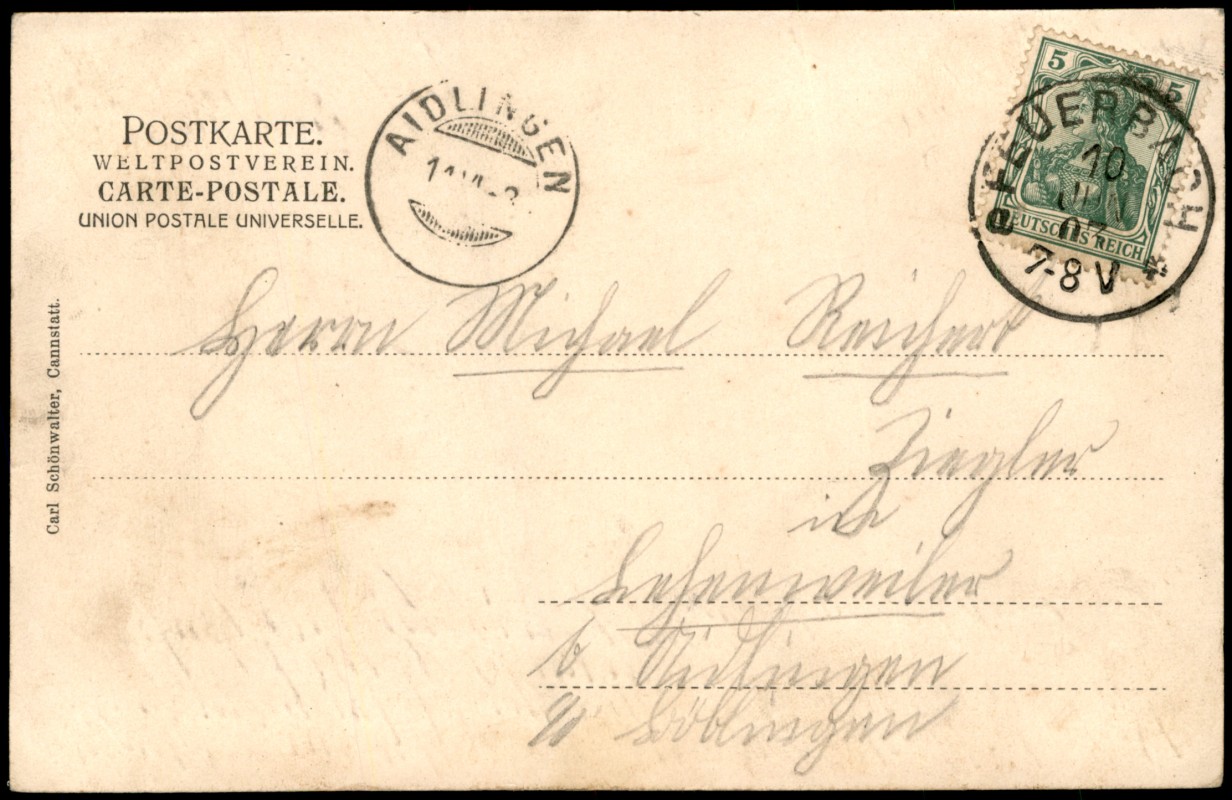 POSTKARTE.
WELTPOSTVEREIN.
CARTE-POSTALE.
UNION POSTALE UNIVERSELLE.
AIDLINGEN
5 5
DEUTSCHES REICH
FEUERBACH
10
JUN
03
7-8 V
Carl Schönwalter, Cannstatt.
Herrn Michael Reichert
Ziegler
in
Lehenweiler
b. Aidlingen
Böblingen